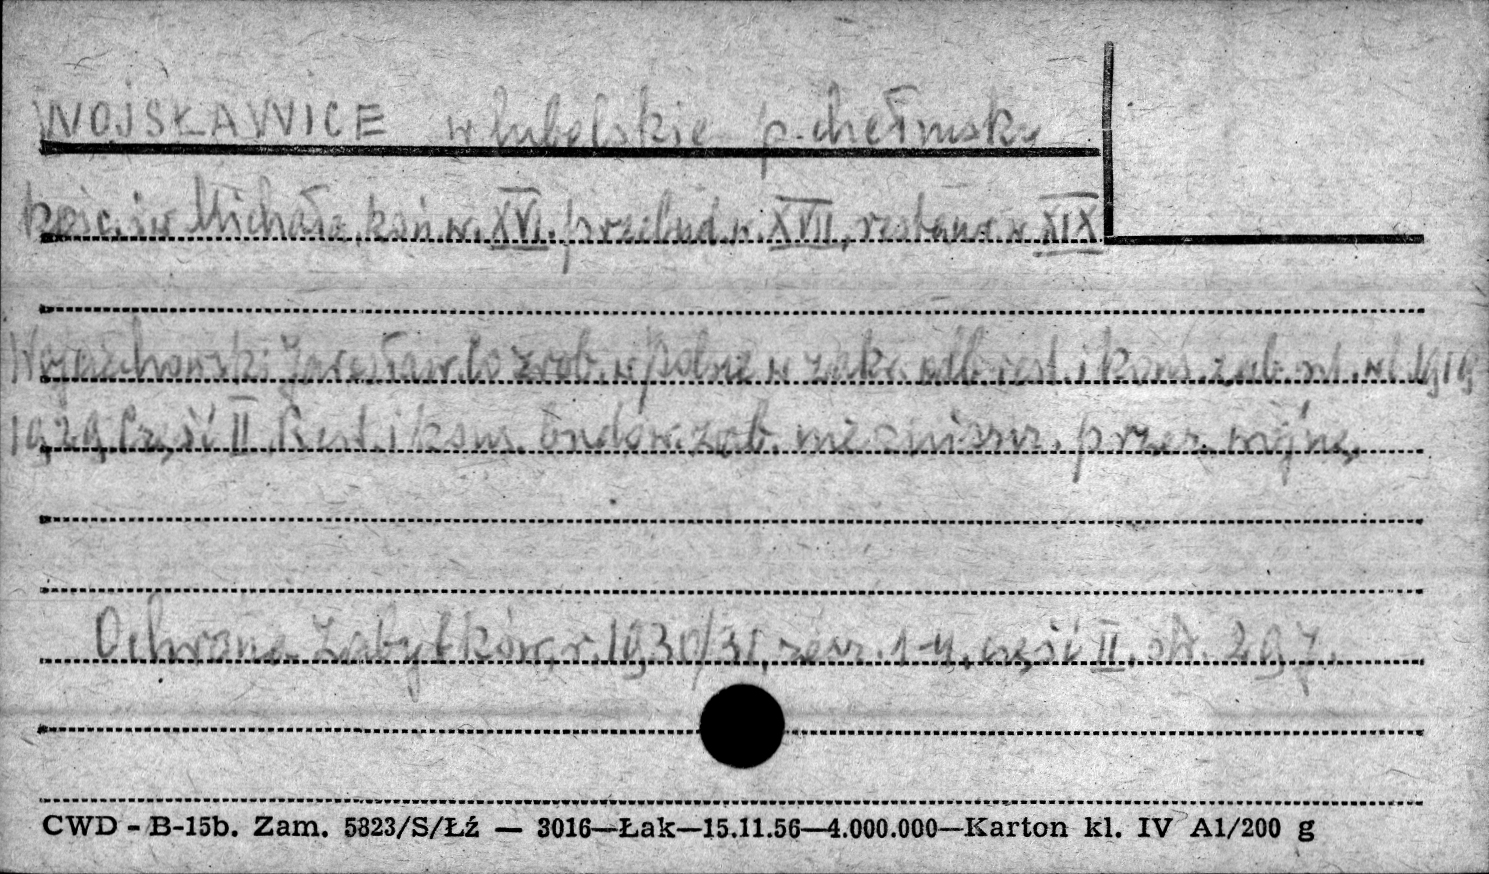 WOJSŁAWICE w lubelskie p. chełmski
Kośc. św Michała, koń. w. XVI. przebud. w. XVII, restaur. w XIX
Wojciechowski Jarosław. Co zrob. w Polsce w zakr. odb. rest. i kons. zab. szt. w l. 1919-
1929. Część II. Rest. i kons. budow. zab. nie zniszcz. przez wojnę.
Ochrona Zabytków, r. 1930/31, zesz. 1-4, część II. str. 297.
CWD - B-15b. Zam. 5823/S/Łź — 3016—Łak—15.11.56—4.000.000—Karton kl. IV A1/200 g